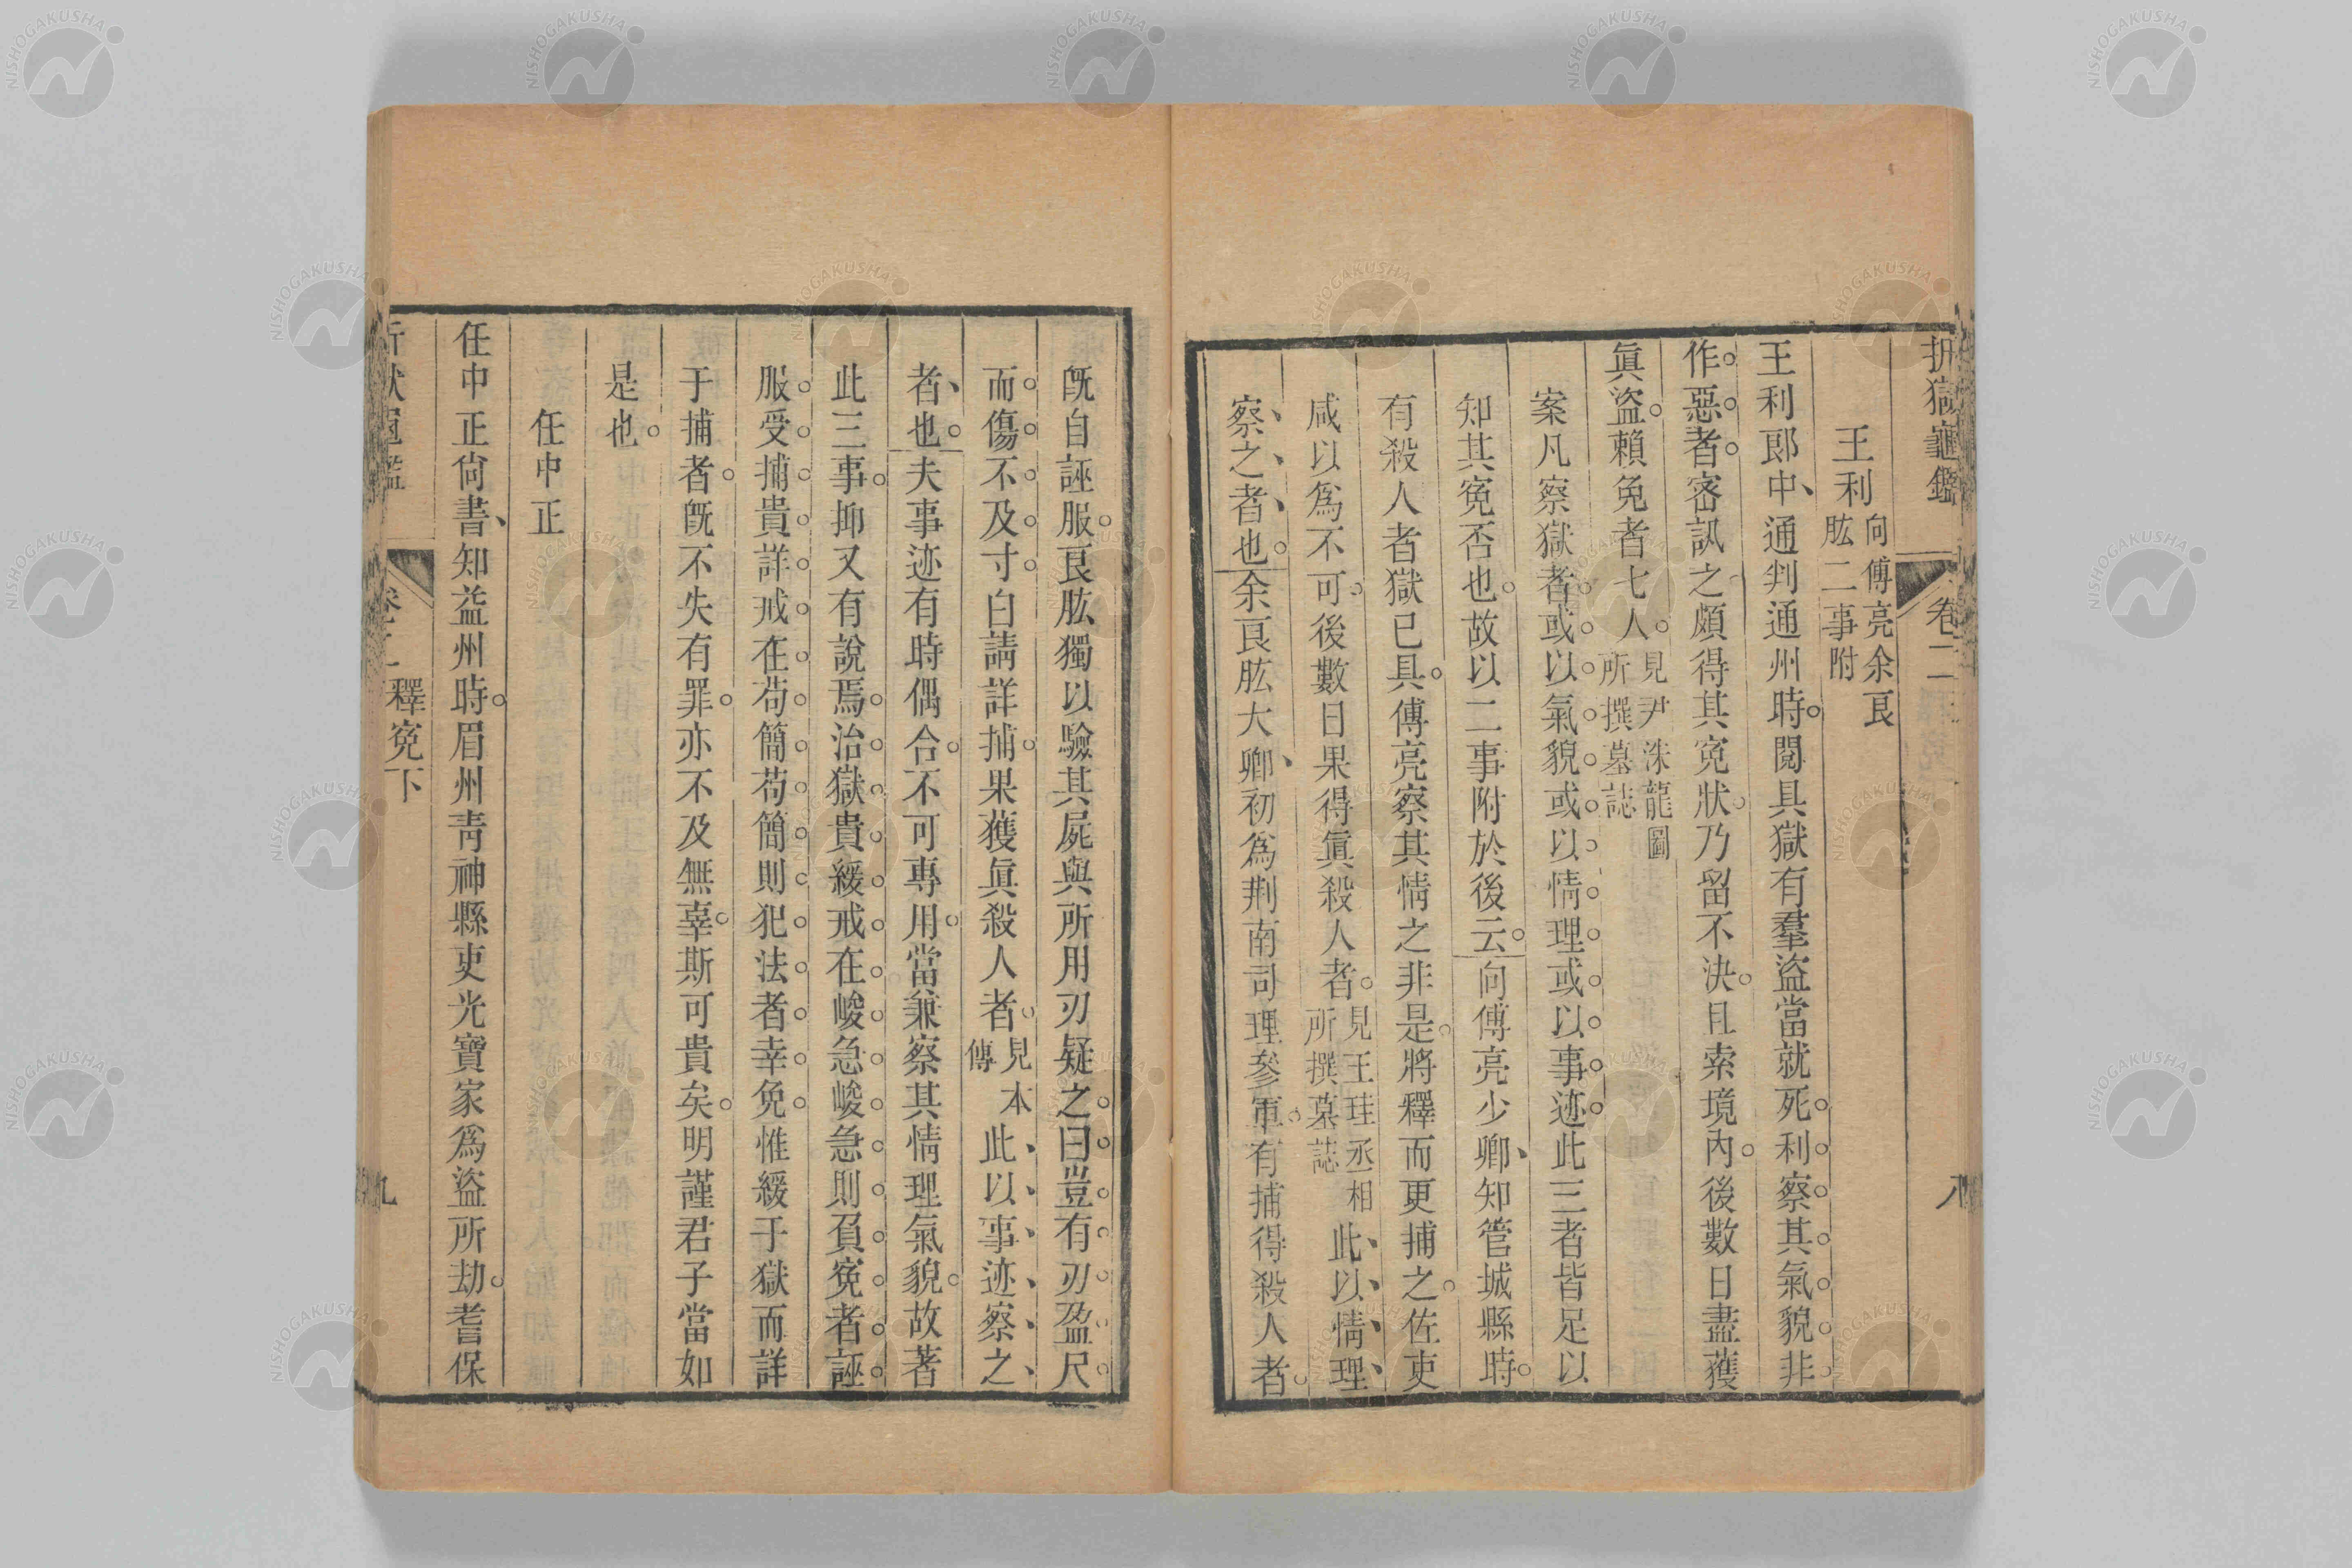 折獄龜鑑 卷二 八
王利 向傅亮余良肱二事附
王利郎中、通判通州時。閱具獄有羣盜當就死。利。察。其。氣。貌。非。
作。惡。者。密訊之頗得其寃狀。乃留不決。且索境內。後數日盡獲
眞盜。賴免者七人。見尹洙龍圖所撰墓誌
案凡察獄者。或。以。氣。貌。或。以。情。理。或。以。事。迹。此三者皆足以
知其寃否也。故以二事附於後云。向傅亮少卿、知管城縣時。
有殺人者獄已具。傅亮察其情之非是。將釋而更捕之。佐吏
咸以爲不可。後數日果得眞殺人者。見王珪丞相所撰墓誌此、以、情、理、
察、之、者、也。余良肱大卿、初爲荆南司理參軍。有捕得殺人者。
旣自誣服。良肱獨以驗其屍與所用刃疑之。曰。豈。有。刃。盈。尺。
而。傷。不。及。寸。白請詳捕。果獲眞殺人者。見本傳此、以、事、迹、察、之、
者、也。夫事迹有時偶合。不可專用。當兼察其情理氣貌。故著
此三事。抑又有說焉。治。獄。貴。緩。戒。在。峻。急。峻。急。則。負。寃。者。誣。
服。受。捕。貴。詳。戒。在。苟。簡。苟。簡。則。犯。法。者。幸。免。惟緩于獄而詳
于捕者。旣不失有罪。亦不及無辜。斯可貴矣。明謹君子當如
是也。
任中正
任中正尙書、知益州時。眉州靑神縣吏光寶家爲盜所劫。耆保
折獄龜鑑 卷二 釋寃下 九